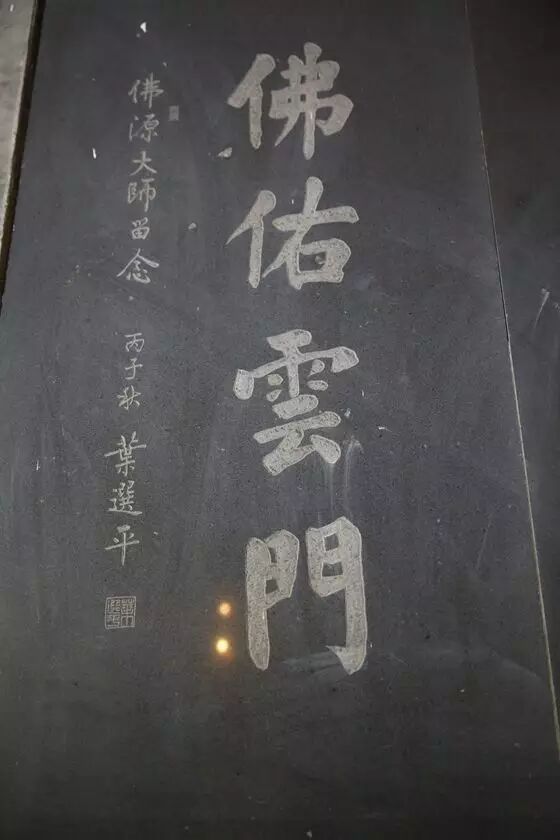 佛佑雲門
佛源大師留念
丙子秋 葉選平